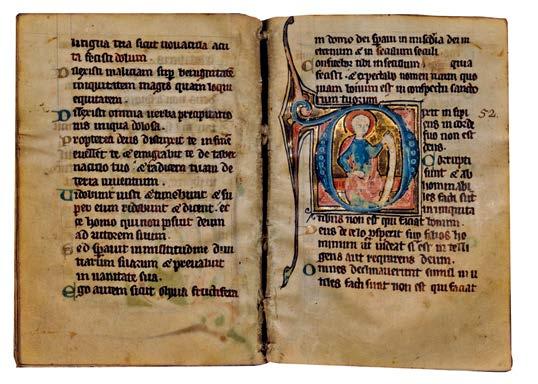 lingua tua sicut novacula acu
ta fecisti dolum.
Dilexisti maliciam sup benignitate
iniquitatem magis quam loqui
equitatem.
Dilexisti omnia verba precipitatio
nis lingua dolosa.
Propterea deus destruet te in fine
evellet te & emigrabit te de taber
naculo tuo & radicem tuam de
terra viventium.
Videbunt iusti & timebunt & su
per eum ridebunt & dicent. ec
ce homo qui non posuit deum
adiutorem suum.
Sed speravit in multitudine divi
tiarum suarum & prevaluit
in vanitate sua.
Ego autem sicut oliva fructifera
in domo dei speravi in misericordia dei in
eternum & in seculum seculi
Confitebor tibi in seculum quia
fecisti & expectabo nomen tuum quo
niam bonum est in conspectu sancto
rum tuorum.
Dixit insipi 52.
ens in corde
suo non est
deus.
Corrupti
sunt & ab
hominabi
les facti sunt
in iniquita
tibus non est qui faciat bonum.
Deus de celo prospexit sup filios ho
minum ut videat si est intelli
gens aut requirens deum.
Omnes declinaverunt simul inu
tiles facti sunt non est qui faciat